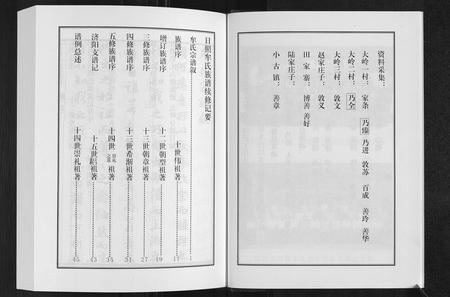 资料采集：
大岭一村：家条 乃臻 乃进 敦苏 百成 善玲 善华
大岭二村：乃全
大岭三村：敦文
赵家庄子：敦义
田家寨：博善 善好
陆家庄子：
小古镇：善章
日照牟氏族谱续修记要
牟氏宗谱叙
族谱序 十世伟祖著 17
增订族谱序 十二世朝型祖著 19
三修族谱序 十二世朝章祖著 27
四修族谱序 十三世希渐祖著 31
五修族谱序 十四世 祖著 35
济阳支谱记 十五世 祖著 43
谱例总述 十四世崇礼祖著 45